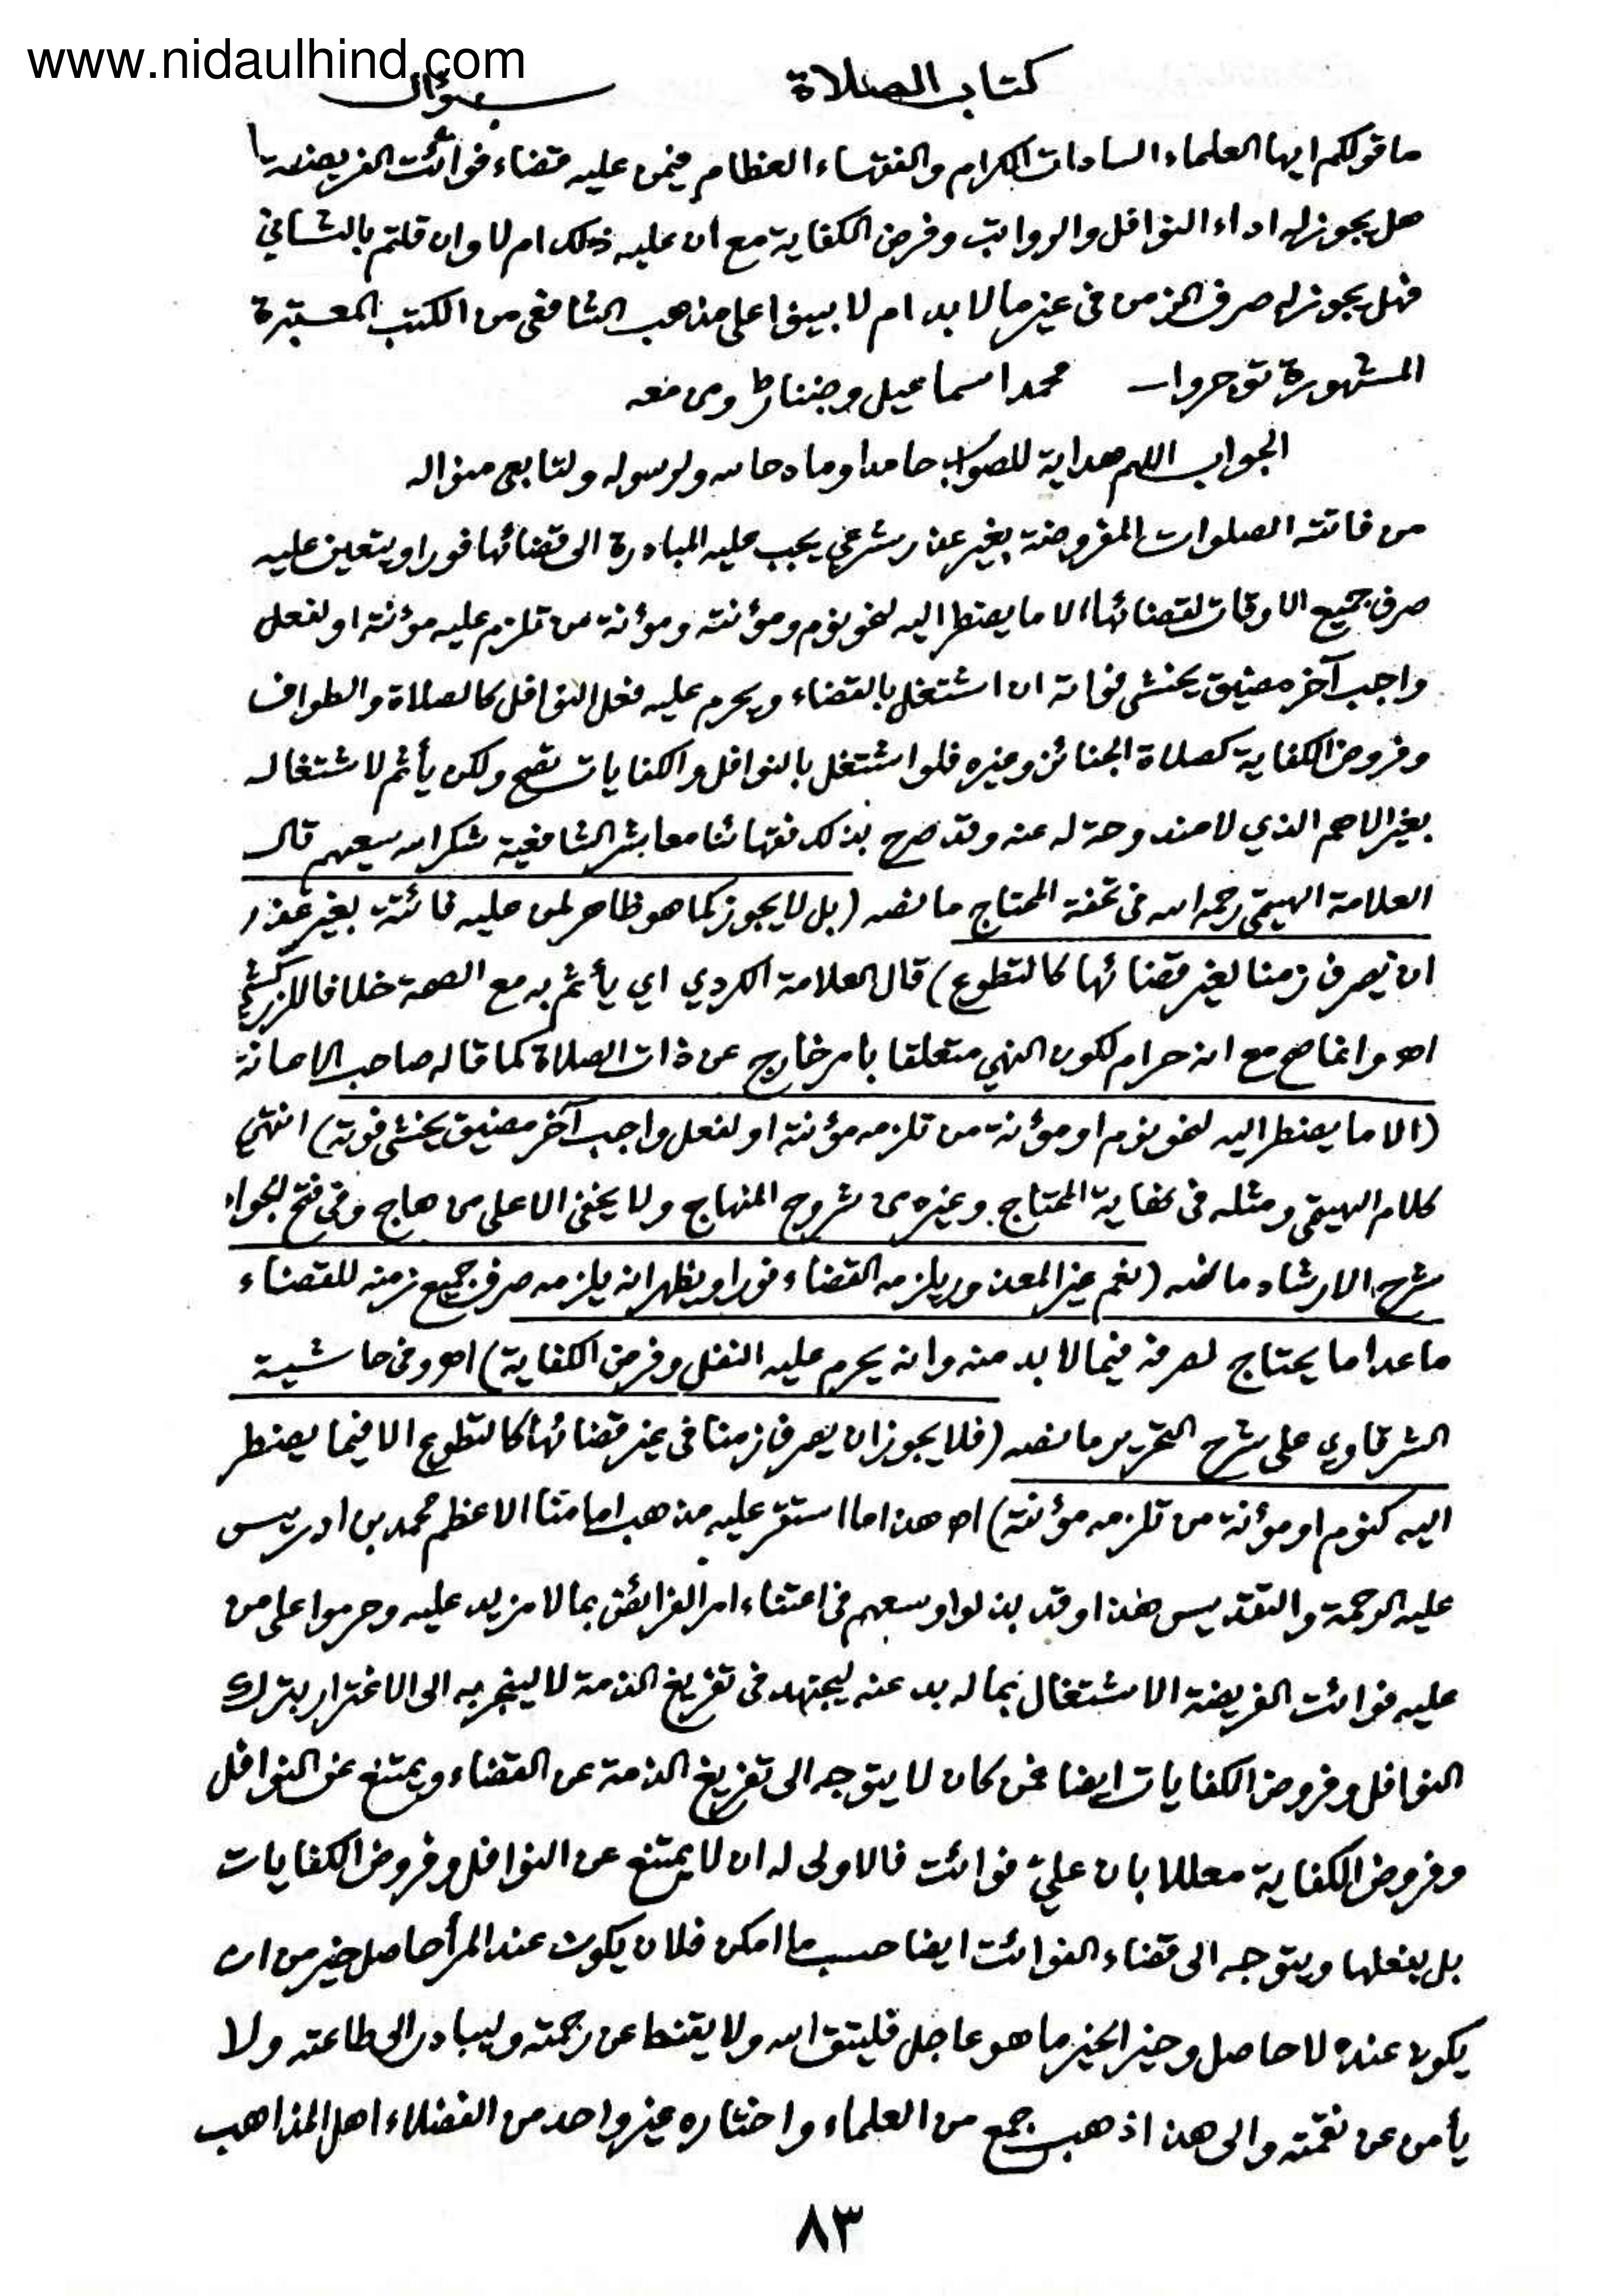 www.nidaulhind.com
كتاب الصلاة سؤال
ما قولكم ايها العلماء السادات الكرام والفقهاء العظام فيمن عليه قضاء فوائت الفريضة
هل يجوز له اداء النوافل والرواتب وفرض الكفاية مع ان عليه ذلك ام لا وان قلتم بالثاني
فهل يجوز له صرف الزمن في غير ما لا بد ام لا بينوا على مذهب الشافعي من الكتب المعتبرة
المشهورة توجروا محمد اسماعيل ومن معه
الجواب اللهم هداية للصواب حامدا ومادحا له ولرسوله ولتابعي منواله
من فاتته الصلوات المفروضة بغير عذر شرعي يجب عليه المبادرة الى قضائها فورا ويتعين عليه
صرف جميع الاوقات لقضائها الا ما يضطر اليه لنحو نوم ومؤنته ومؤنة من تلزم عليه مؤنته او لفعل
واجب آخر مضيق يخشى فواته ان اشتغل بالقضاء ويحرم عليه فعل النوافل كالصلاة والطواف
وفروض الكفاية كصلاة الجنائز وغيره فلو اشتغل بالنوافل والكفايات تصح ولكن يأثم لاشتغاله
بغير الاهم الذي لا مندوحة له عنه وقد صرح بذلك فقهائنا معاشر الشافعية شكر الله سعيهم قال
العلامة الهيتمي رحمه الله في تحفة المحتاج ما نصه (بل لا يجوز كما هو ظاهر لمن عليه فائتة بغير عذر
ان يصرف زمنا لغير قضائها كالتطوع) قال العلامة الكردي اي يأثم به مع الصحة خلافا للزركشي
اهـ وانما صح مع انه حرام لكون النهي متعلقا بامر خارج عن ذات الصلاة كما قاله صاحب الاعانة
(الا ما يضطر اليه لنحو نوم او مؤنة من تلزمه مؤنته او لفعل واجب آخر مضيق يخشى فوته) انتهى
كلام الهيتمي ومثله في كفاية المحتاج وغيره من شروح المنهاج ولا يخفى الا على من هاج وفي فتح الجواد
شرح الارشاد ما نصه (نعم غير المعذور يلزمه القضاء فورا ويظهر انه يلزمه صرف جميع زمنه للقضاء
ما عدا ما يحتاج لصرفه فيما لا بد منه وانه يحرم عليه النفل وفرض الكفاية) اهـ وفي حاشية
الشرقاوي على شرح التحرير ما نصه (فلا يجوز ان يصرف زمنا في غير قضائها كالتطوع الا فيما يضطر
اليه كنوم او مؤنة من تلزمه مؤنته) اهـ هذا ما استقر عليه مذهب امامنا الاعظم محمد بن ادريس
عليه الرحمة والتقديس هذا وقد بذلوا وسعهم في اعتناء امر الفرائض بما لا مزيد عليه وحرموا على من
عليه فوائت الفريضة الاشتغال بما له بد عنه ليجتهد في تفريغ الذمة لا لينجر به الى الاغترار بترك
النوافل وفروض الكفايات ايضا فمن كان لا يتوجه الى تفريغ الذمة عن القضاء ويمتنع عن النوافل
وفروض الكفاية معللا بان عليّ فوائت فالاولى له ان لا يمتنع عن النوافل وفروض الكفايات
بل يفعلها ويتوجه الى قضاء الفوائت ايضا حسب ما امكن فلان يكون عند المرأ حاصل خير من ان
يكون عنده لا حاصل وخير الخير ما هو عاجل فليتق الله ولا يقنط عن رحمته وليبادر الى طاعته ولا
يأمن عن نقمته والى هذا ذهب جمع من العلماء واختاره غير واحد من الفضلاء اهل المذاهب
٨٣